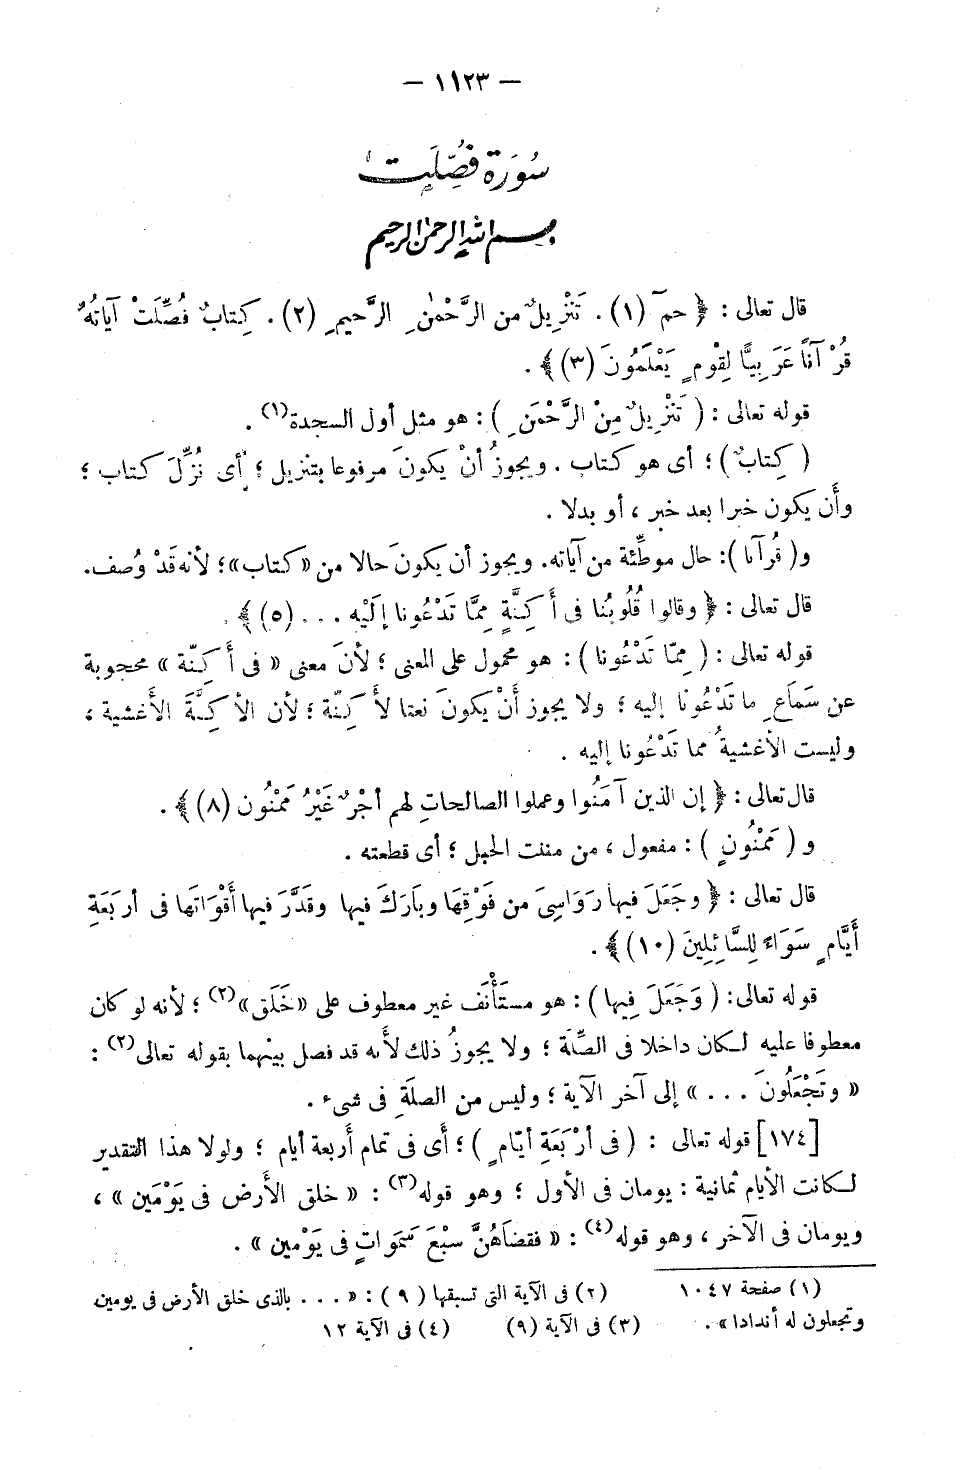 — ١١٢٣ —
سُورَة فُصِّلَتْ
بسم الله الرحمن الرحيم
قال تعالى : ﴿ حمٓ (١) . تَنْزِيلٌ من الرَّحْمٰنِ الرَّحيمِ (٢) . كِتابٌ فُصِّلَتْ آياتُهُ
قُرْآناً عَرَبِيًّا لِقَوْمٍ يَعْلَمُونَ (٣) ﴾ .
قوله تعالى : ( تَنْزِيلٌ مِنْ الرَّحْمَنِ ) : هو مثل أول السجدة(١) .
( كِتابٌ ) ؛ أى هو كتاب . ويجوزُ أنْ يكونَ مرفوعا بتنزيل ؛ أى نُزِّلَ كتاب ؛
وأن يكون خبرا بعد خبر ، أو بدلا .
و( قُرآنا ) : حال موطِّئة من آياته . ويجوز أن يكونَ حالا من «كتاب» ؛ لأنه قَدْ وُصف .
قال تعالى : ﴿ وقالوا قُلُوبُنا فى أَكِنَّةٍ مِمَّا تَدْعُونا إلَيْهِ . . . (٥) ﴾ .
قوله تعالى : ( مِمّا تَدْعُونا ) : هو محمول على المعنى ؛ لأنَ معنى « فى أَكِنّة » محجوبة
عن سَمَاعِ ما تَدْعُونَا إليه ؛ ولا يجوز أَنْ يكونَ نعتا لأَكِنّة ؛ لأن الأكِنَّةَ الأغشية ،
وليست الأغشيةُ مما تَدْعُونا إليه .
قال تعالى : ﴿ إن الذين آمَنُوا وعملوا الصالحاتِ لهم أجْرٌ غَيْرُ مَمْنُون (٨) ﴾ .
و ( مَمْنُونٍ ) : مفعول ، من مننت الحبل ؛ أى قطعته .
قال تعالى : ﴿ وجَعَلَ فيها رَوَاسِىَ من فَوْقِهَا وبَارَكَ فيها وقَدَّرَ فيها أَقْوَاتَها فى أربَعَةِ
أَيَّامٍ سَوَاءً لِلسَّائِلِينَ (١٠) ﴾ .
قوله تعالى : ( وَجَعَلَ فِيها ) : هو مستَأْنَف غير معطوف على «خَلَق»(٢) ؛ لأنه لو كان
معطوفا عليه لكان داخلا فى الصِّلَة ؛ ولا يجوزُ ذلك لأَنه قد فصل بينهما بقوله تعالى(٢) :
« وتَجْعَلُونَ . . . » إلى آخر الآية ؛ وليس من الصلَةِ فى شىء .
[١٧٤] قوله تعالى : ( فى أرْبَعَةِ أيّامٍ ) ؛ أى فى تمام أربعة أيام ؛ ولولا هذا التقدير
لكانت الأيام ثمانية : يومان فى الأول ؛ وهو قوله(٣) : « خلق الأرض فى يَوْمَين » ،
ويومان فى الآخر ، وهو قوله(٤) : « فقضَاهُنَّ سبْعَ سَمَواتٍ فى يَوْمين » .
(١) صفحة ١٠٤٧ (٢) فى الآية التى تسبقها ( ٩ ) : « . . . بالذى خلق الأرض فى يومين
وتجعلون له أندادا » . (٣) فى الآية (٩) (٤) فى الآية ١٢